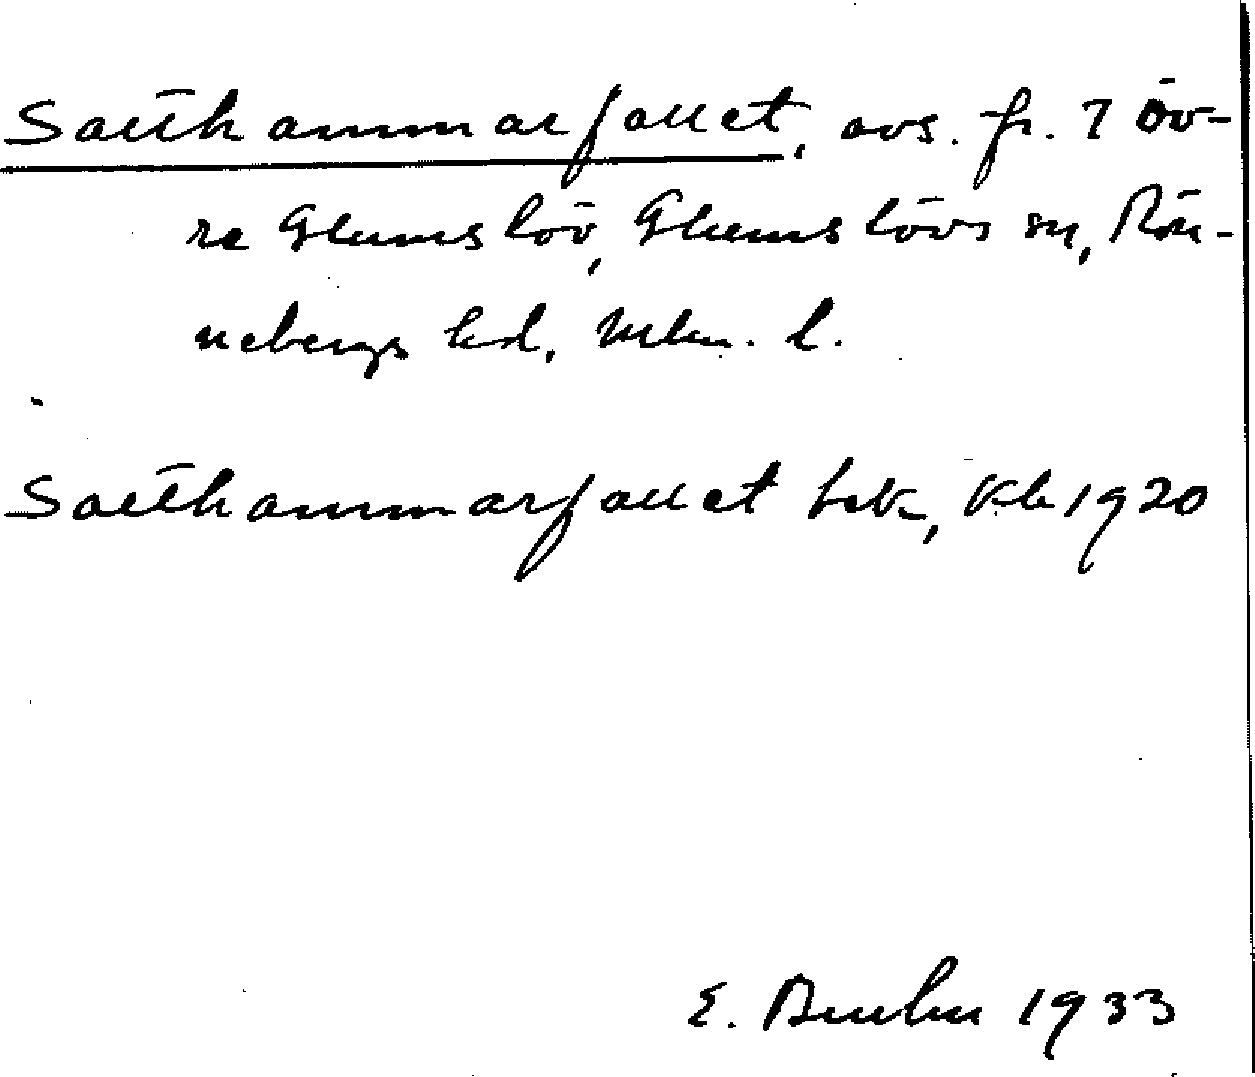 Salthammarfallet, avs. fr. 7 Öv-
re Glumslöv, Glumslövs sn, Rön-
nebergs hd, Mlm. l.
Salthammarfallet 1920
E. 1933